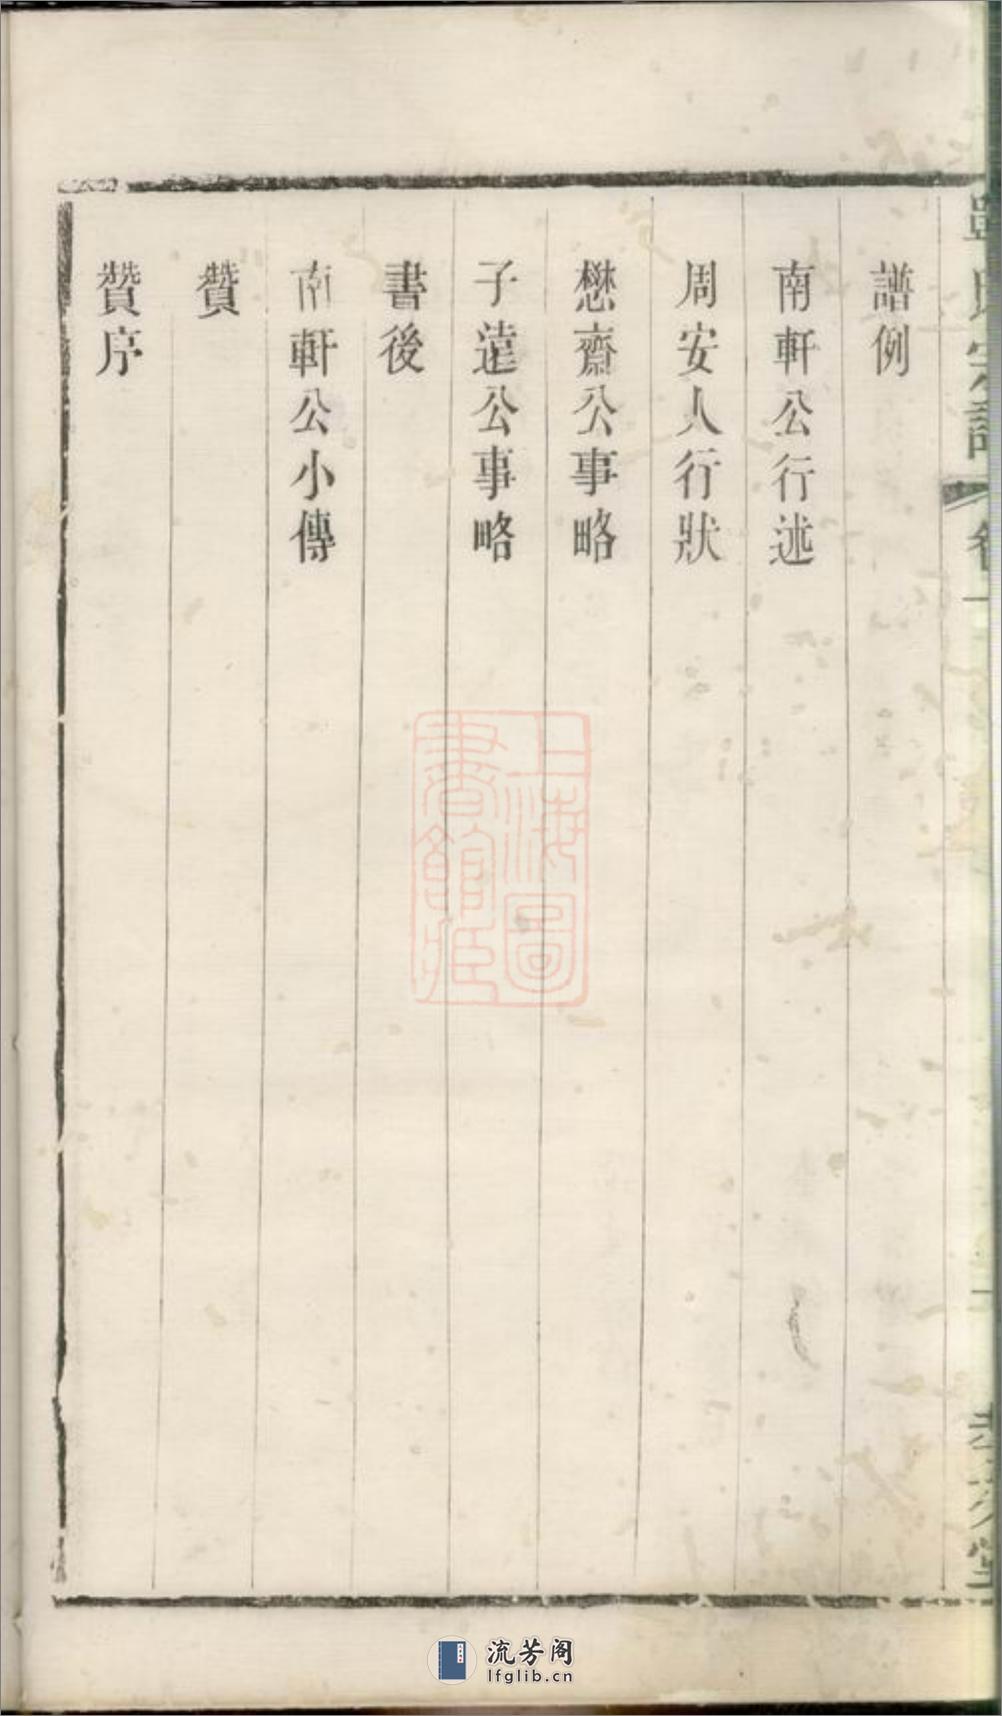 譜例
南軒公行述
周安人行狀
懋齋公事略
子遠公事略
書後
南軒公小傳
贊
贊序
上海圖
書館藏
流芳阁
lfglib.cn